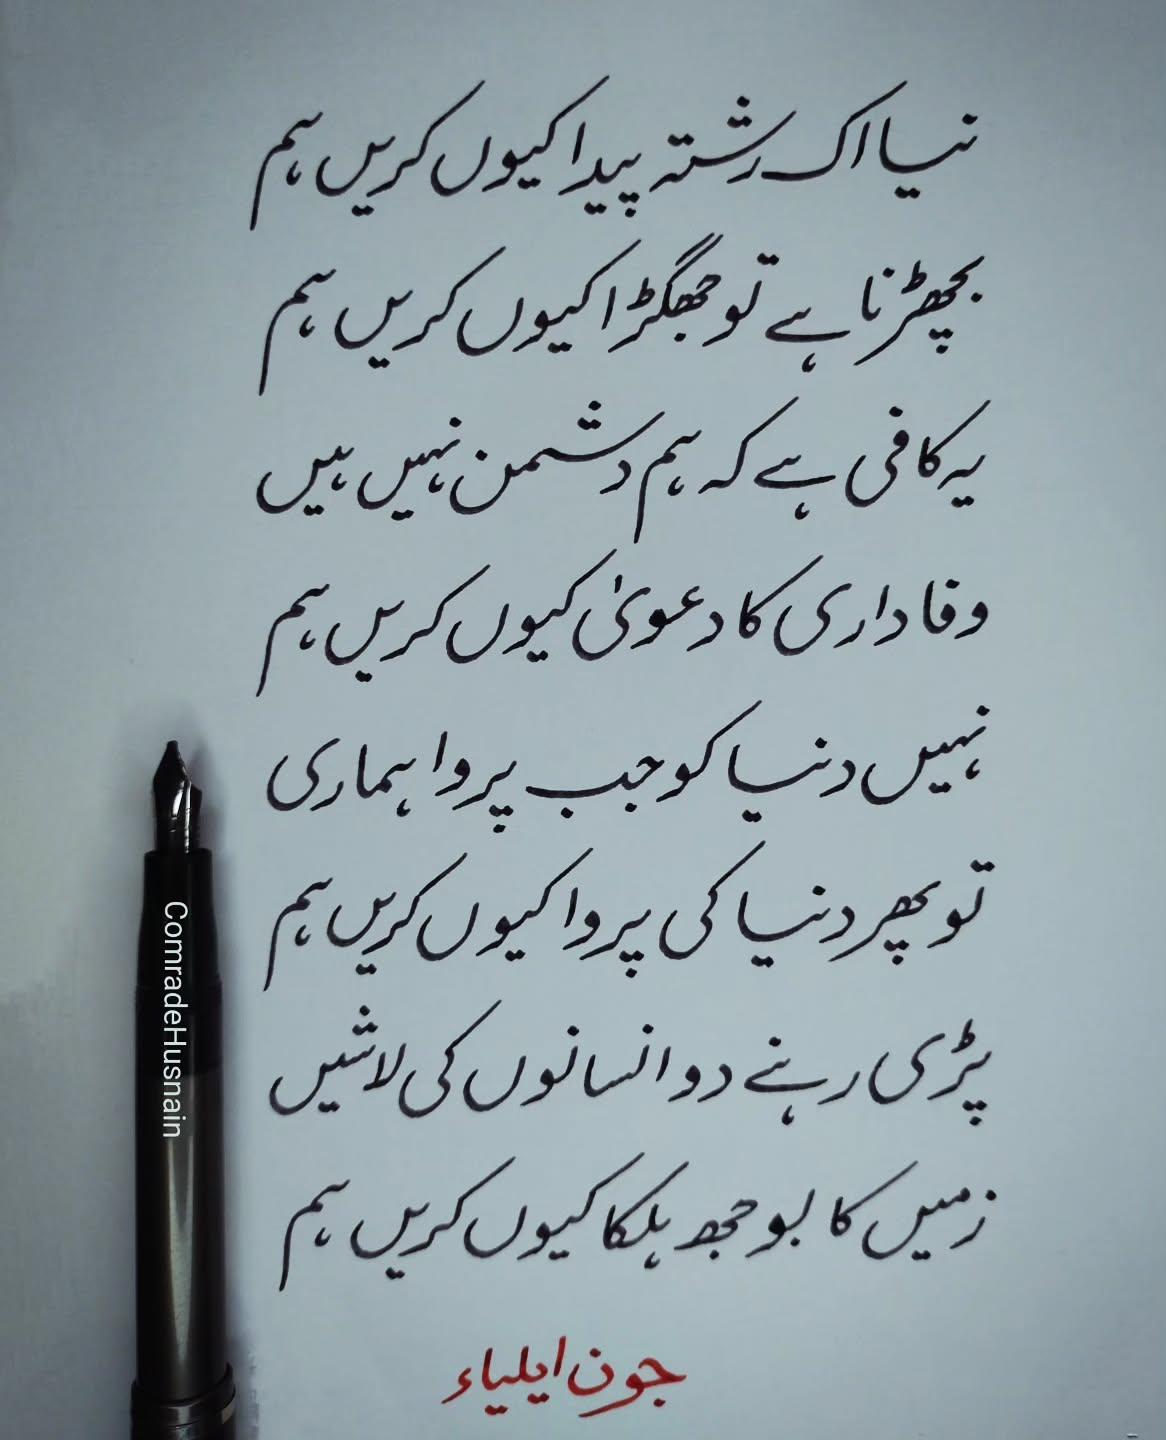 نیا اک رشتہ پیدا کیوں کریں ہم
بچھڑنا ہے تو جھگڑا کیوں کریں ہم
یہ کافی ہے کہ ہم دشمن نہیں ہیں
وفاداری کا دعویٰ کیوں کریں ہم
نہیں دنیا کو جب پروا ہماری
تو پھر دنیا کی پروا کیوں کریں ہم
پڑی رہنے دو انسانوں کی لاشیں
زمیں کا بوجھ ہلکا کیوں کریں ہم
جون ایلیاء
ComradeHusnain